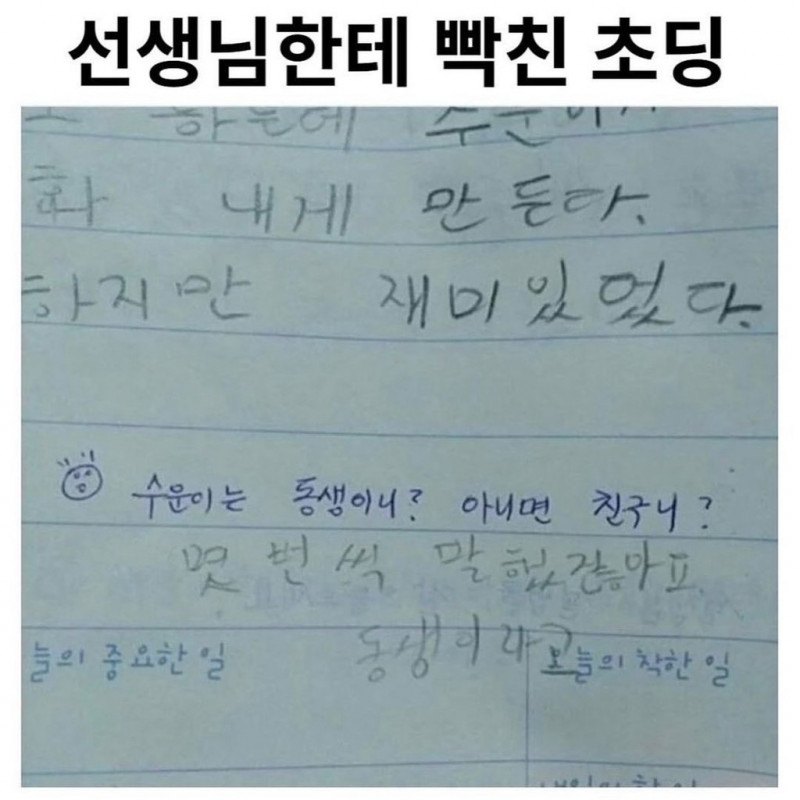 선생님한테 빡친 초딩
하는데 수운이가
화 내게 만든다.
하지만 재미있었다.
수운이는 동생이니? 아니면 친구니?
몇 번 씩 말했잖아요
동생이라고
늘의 중요한 일
오늘의 착한 일